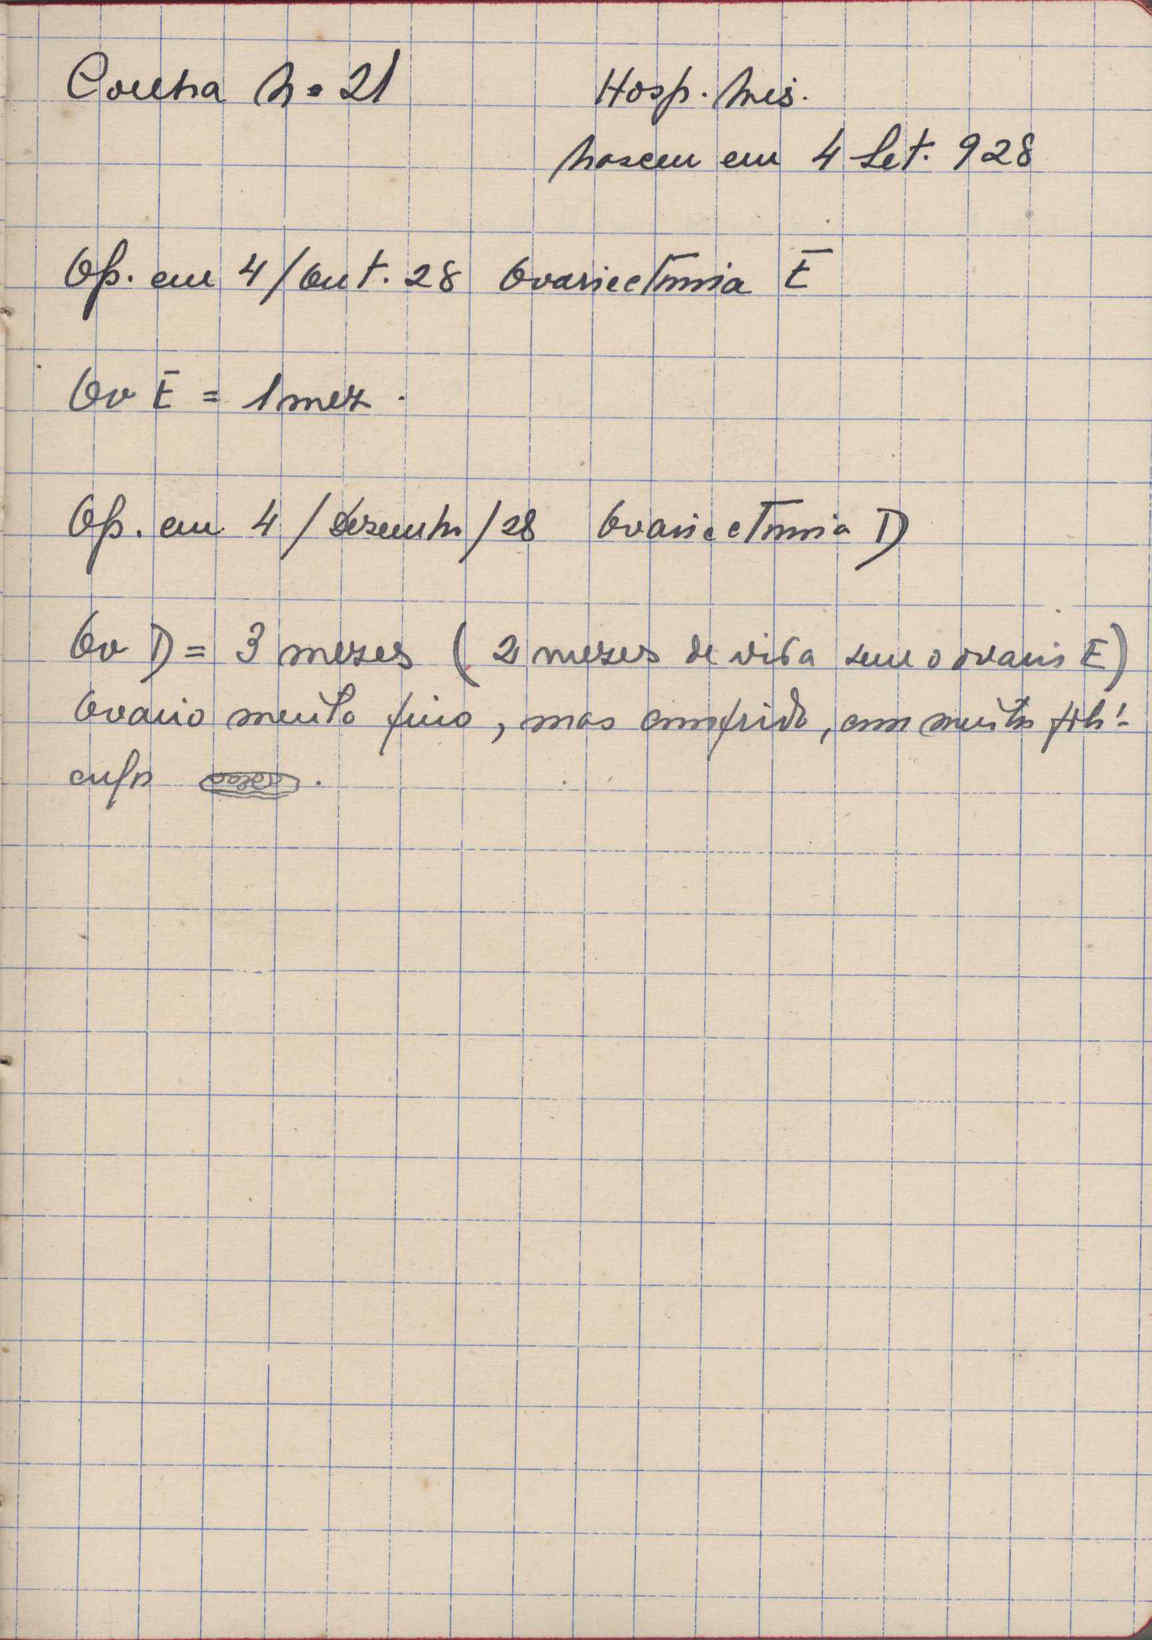 Coelha Nº 21 Hosp. Mis.
Nasceu em 4 Set. 928
Op. em 4/Out. 28 Ovariectomia E
Ov E = 1 mez.
Op. em 4/Dezembro/28 Ovariectomia D
Ov D = 3 mezes (2 mezes de vida sem o ovario E)
Ovario muito fino, mas comprido, com muitos foli-
culos